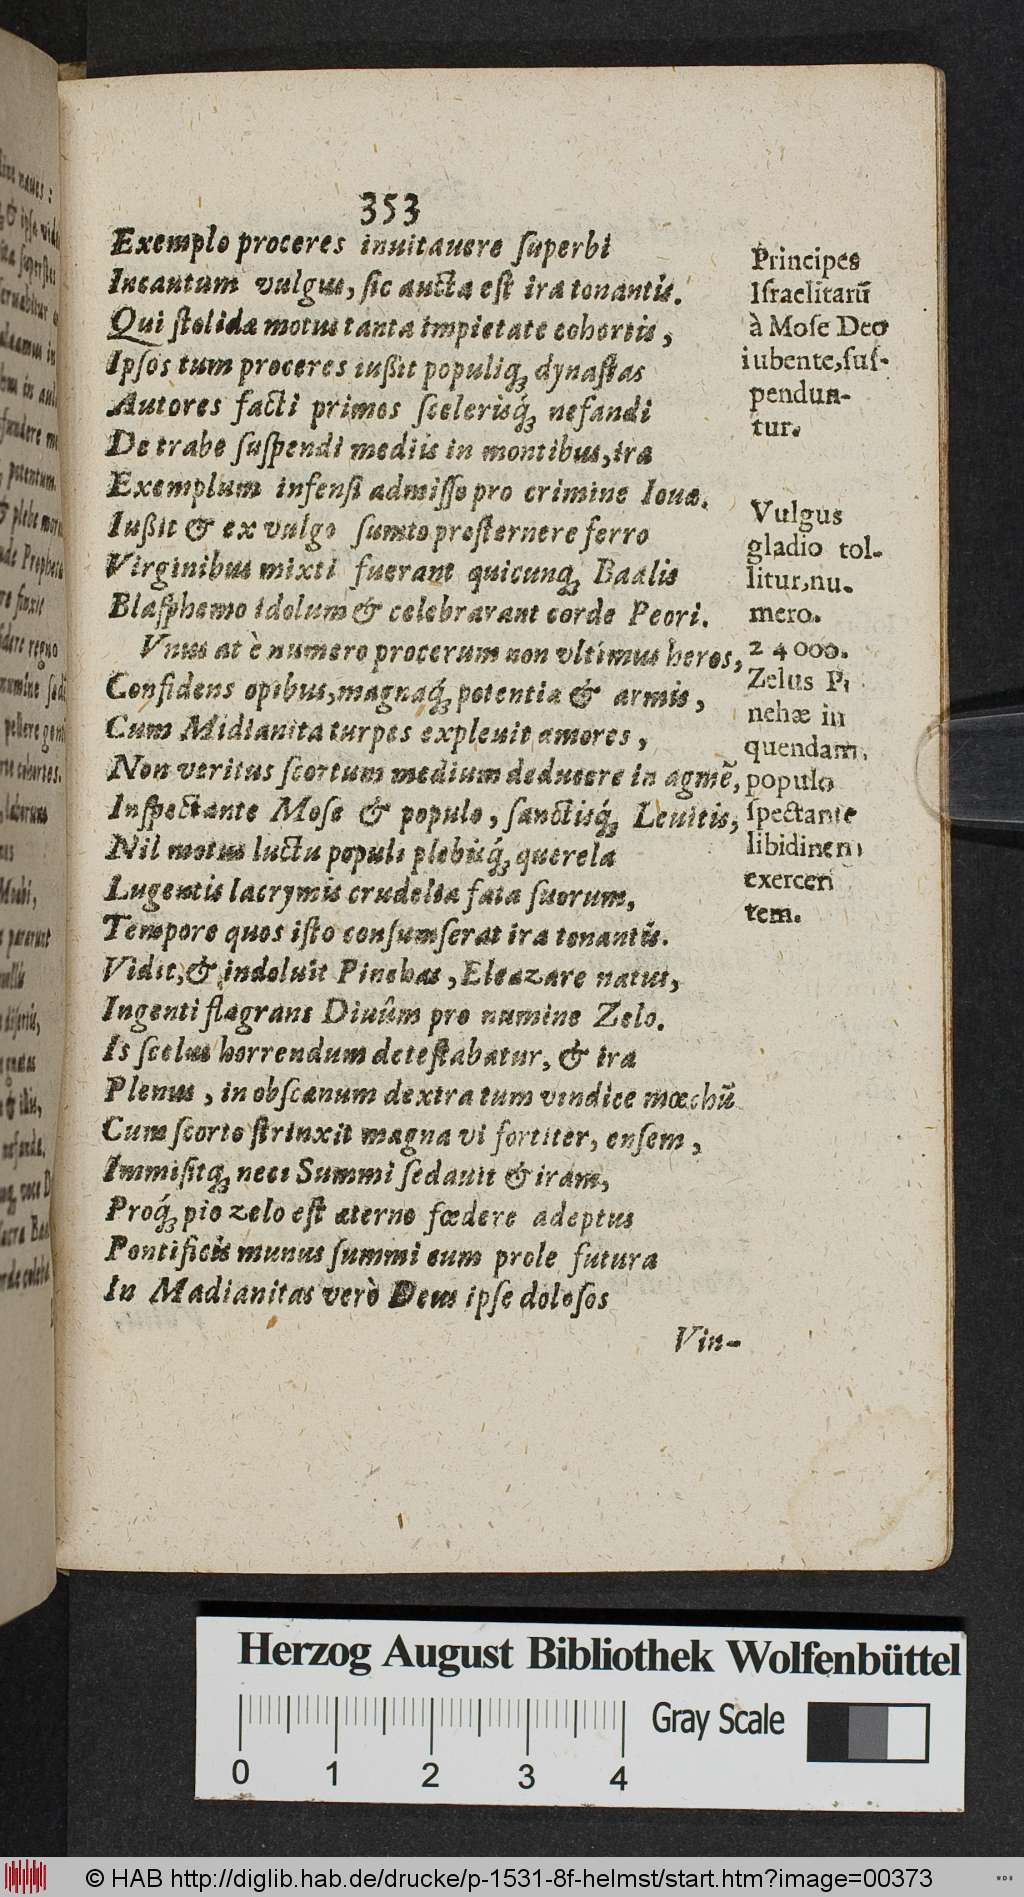 353
Exemplo proceres inuitauere ſuperbi
Incantum vulgus, ſic aucta eſt ira tonantis.
Qui ſtolidæ motus tanta impietate cohortis,
Ipſos tum proceres iußit populiq́; dynaſtas
Autores facti primos ſcelerisq́; nefandi
De trabe ſuſpendi mediis in montibus, ira
Exemplum infenſi admiſſo pro crimine Iouæ.
Iußit & ex vulgo ſumto proſternere ferro
Virginibus mixti fuerant quicunq; Baalis
Blaſphemo idolum & celebrarant corde Peori.
Vnus at è numero procerum non vltimus heros,
Confidens opibus, magnaq́; potentia & armis,
Cum Midianita turpes expleuit amores,
Non veritus ſcortum medium deducere in agmẽ,
Inſpectante Moſe & populo, ſanctisq́; Leuitis,
Nil motus luctu populi plebisq́; querela
Lugentis lacrymis crudelia fata ſuorum,
Tempore quos iſto conſumſerat ira tonantis.
Vidit, & indoluit Pinehas, Eleazare natus,
Ingenti flagrans Diuûm pro numine Zelo.
Is ſcelus horrendum deteſtabatur, & ira
Plenus, in obſcænum dextra tum vindice mœchũ
Cum ſcorto ſtrinxit magna vi fortiter, enſem,
Immiſitq; neci Summi ſedauit & iram,
Proq́; pio zelo eſt æterno fœdere adeptus
Pontificis munus ſummi cum prole futura
In Madianitas verò Deus ipſe doloſos
Vin-
Principes
Iſraelitarũ
à Moſe Deo
iubente, ſuſ-
pendun-
tur.
Vulgus
gladio tol-
litur, nu.
mero.
24000.
Zelus Pi
nehæ in
quendam,
populo
ſpectante
libidinem
exercen
tem.
Herzog August Bibliothek Wolfenbüttel
Gray Scale
0 1 2 3 4
© HAB http://diglib.hab.de/drucke/p-1531-8f-helmst/start.htm?image=00373